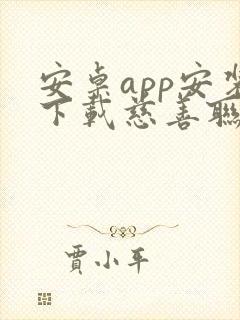 安桌app安裝
下載慈善聯
賈小平